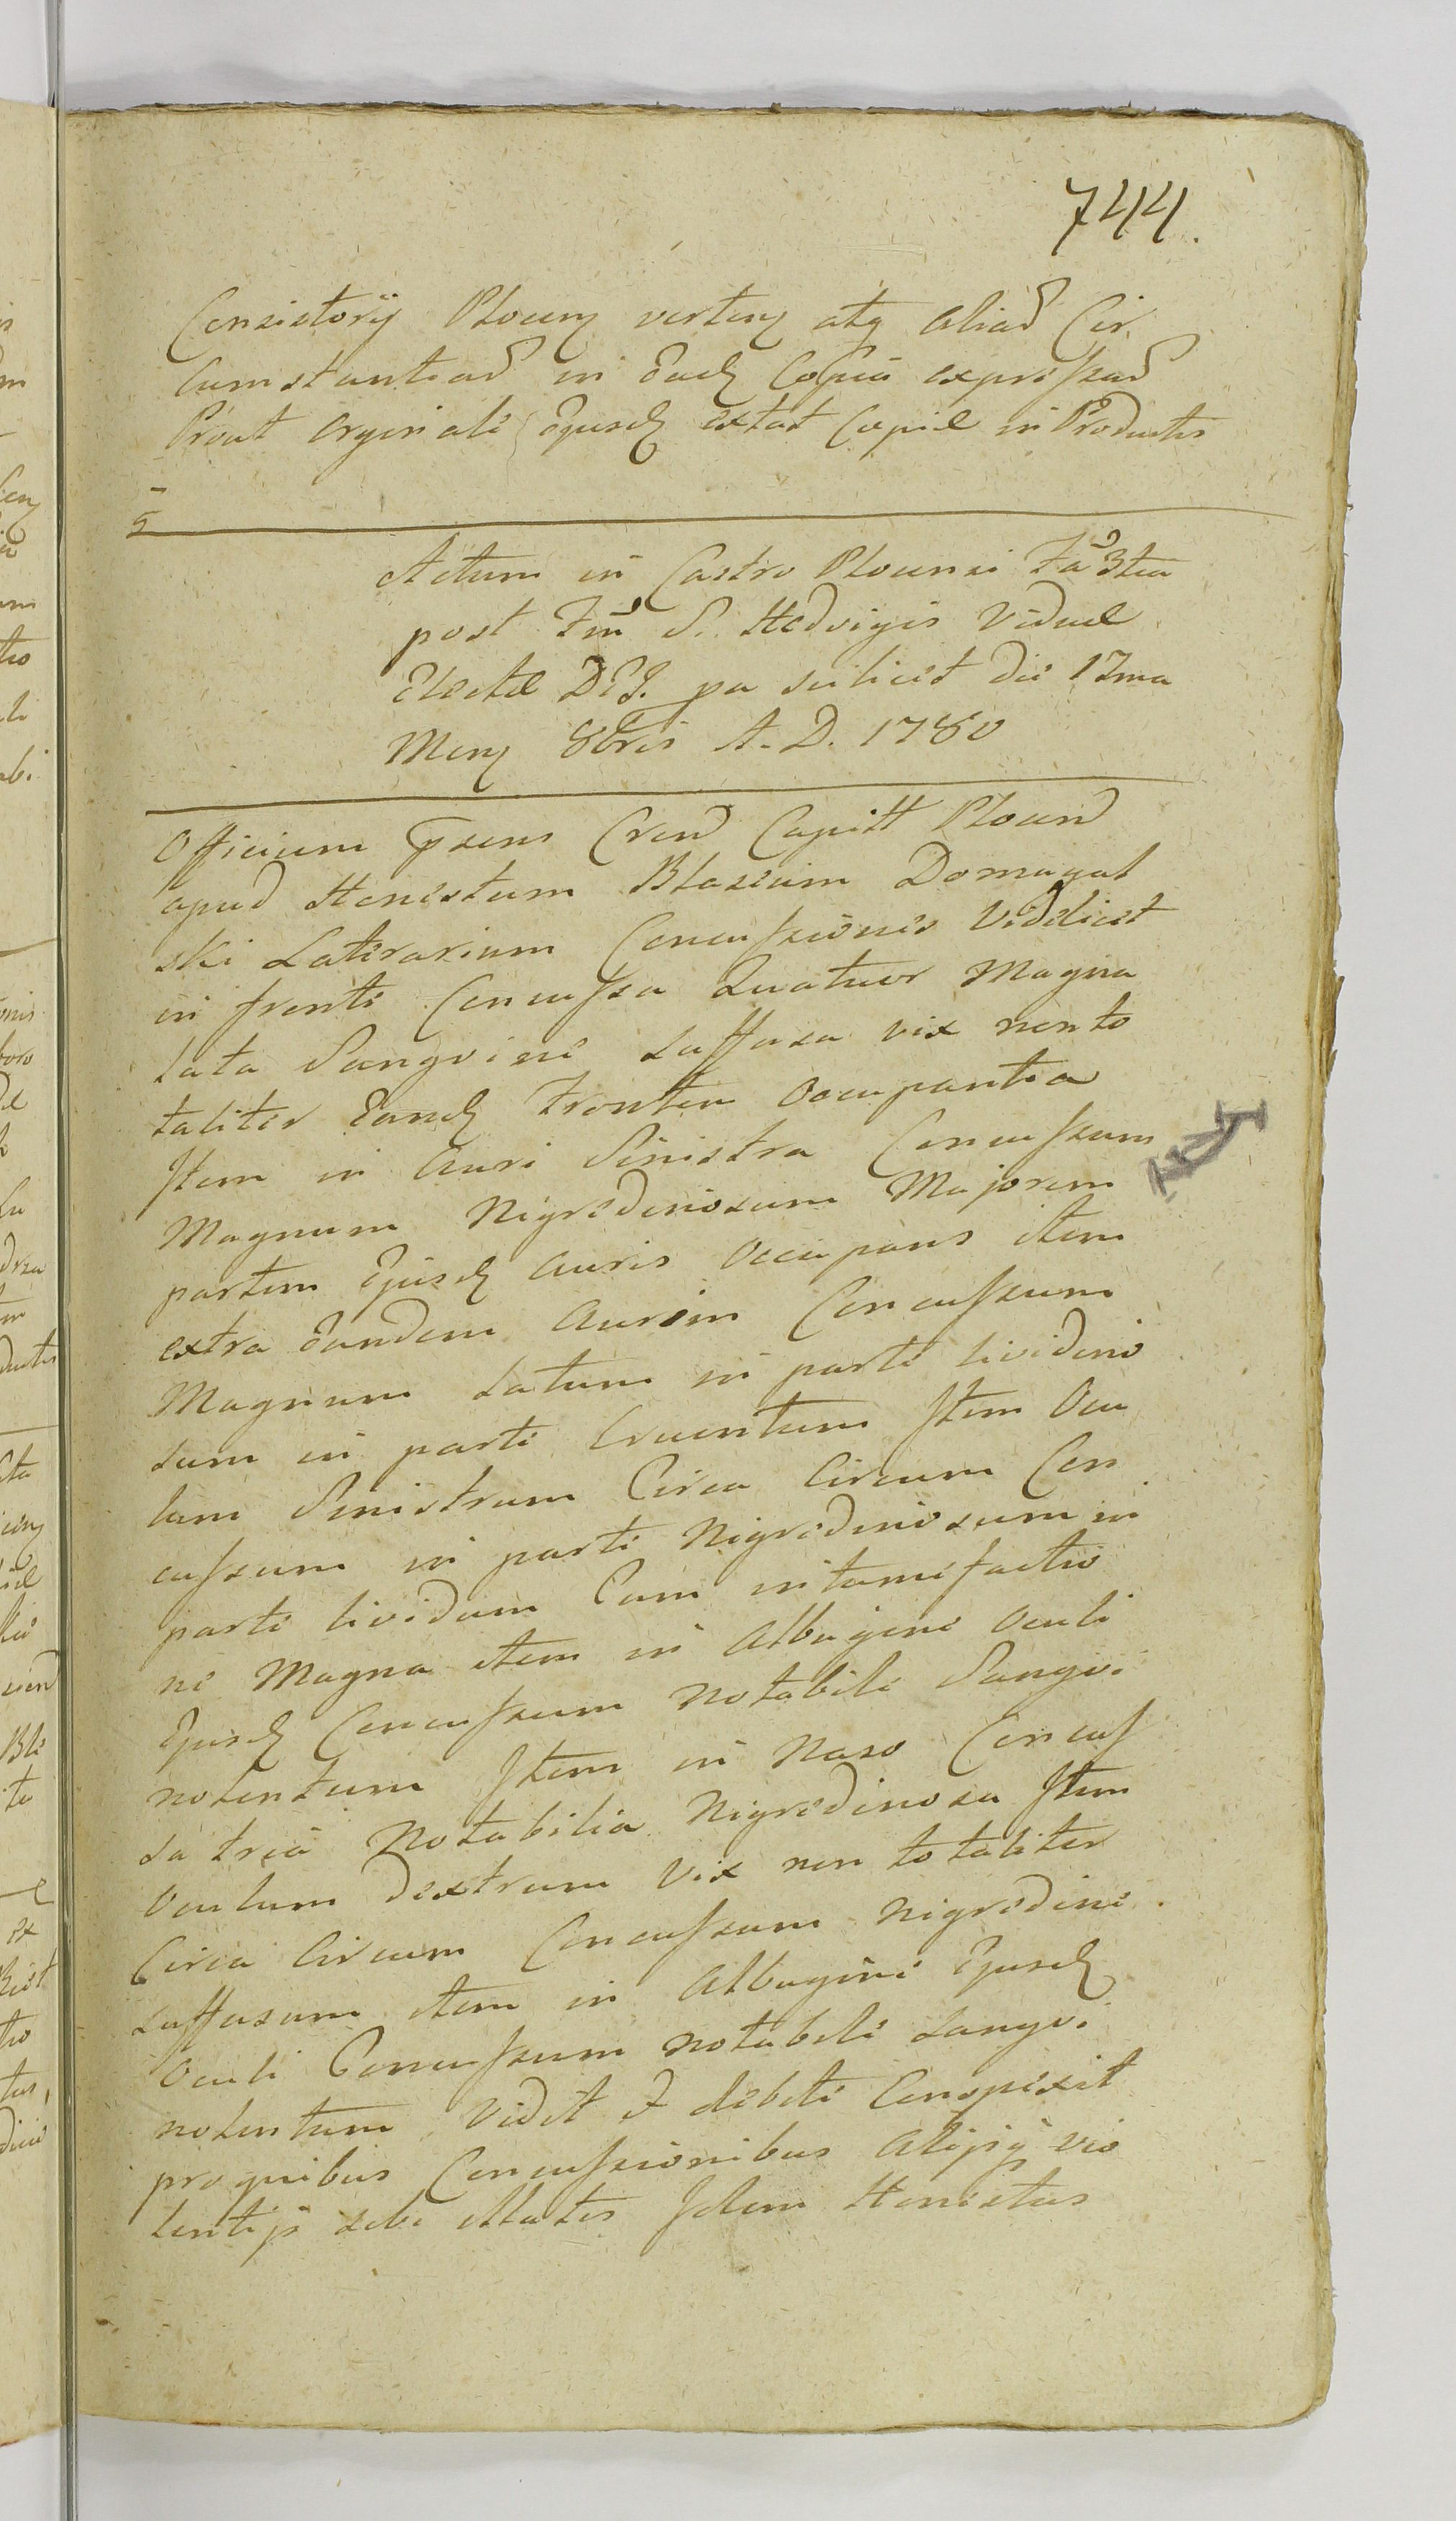 744.
Consistorij Plocen verten atq aliad Cir
cumstantiad in Ead Copia expressad
Prout Orginale Ejusd extat Copiæ in Productis
5
Actum in Castro Plocensi Fa 3tia
post Fm S. Hedvigis Viduæ
Electæ DEJ. pa scilicet die 17ma
Men 8bris A. D. 1780
Officium psens Cren Capitt Plocen
apud Honestum Blasium Domagal
ski Laterarium Concussiones Videlicet
in fronte Concussa Quatuor Magna
Lata Sangvine Suffusa vix non to
taliter Eand Frontem Occupantia
Item in Auri Sinistra Concussum
Magnum Nigredinosum Majorem
partem Ejusd Auris Occupans item
extra Eandem Aurim Concussum
Magnum Latum in parte livideno
sum in parte Cruentum Item Ocu
lum Sinistrum Circa Circum Con
cussum in parte Nigredinosum in
parte lividum Cum intumefactio
ne Magna item in Albugine Oculi
Ejusd Concussum Notabile Sangvi
nolentum Item in Naso Concus
sa tria Notabilia Nigredinosa Item
Oculum dextrum Vix non totaliter
Circa Circum Concussum nigredine
suffusum item in Albugine Ejusd
Oculi Concussum notabile sangvi
nolentum Vidit & debite Conspexit
pro quibus Concussionibus Alijsq vio
lentijs sibi illatis Idem Honestus